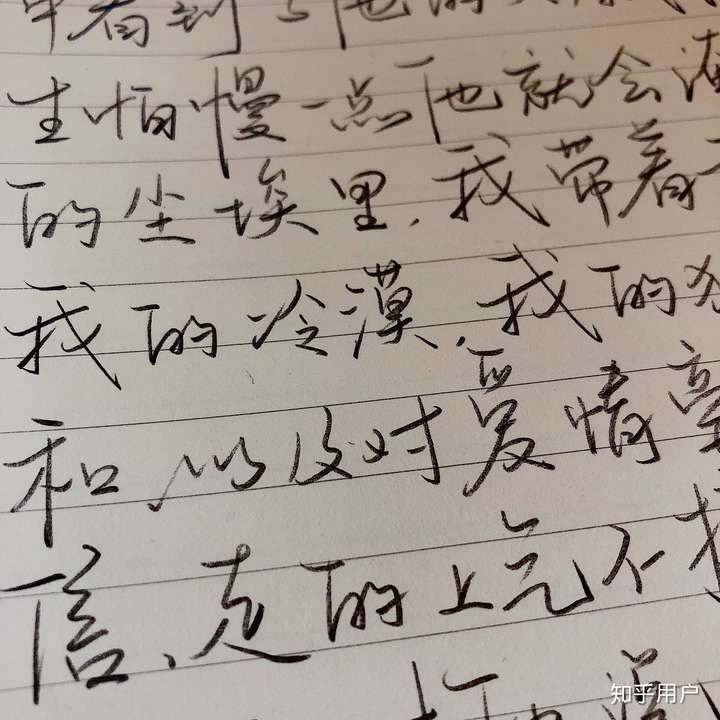 看到 他的
生怕慢一点他就会
的尘埃里,我带着
我的冷漠,我的
和以及对爱情毫
信、走的上气不
知乎用户